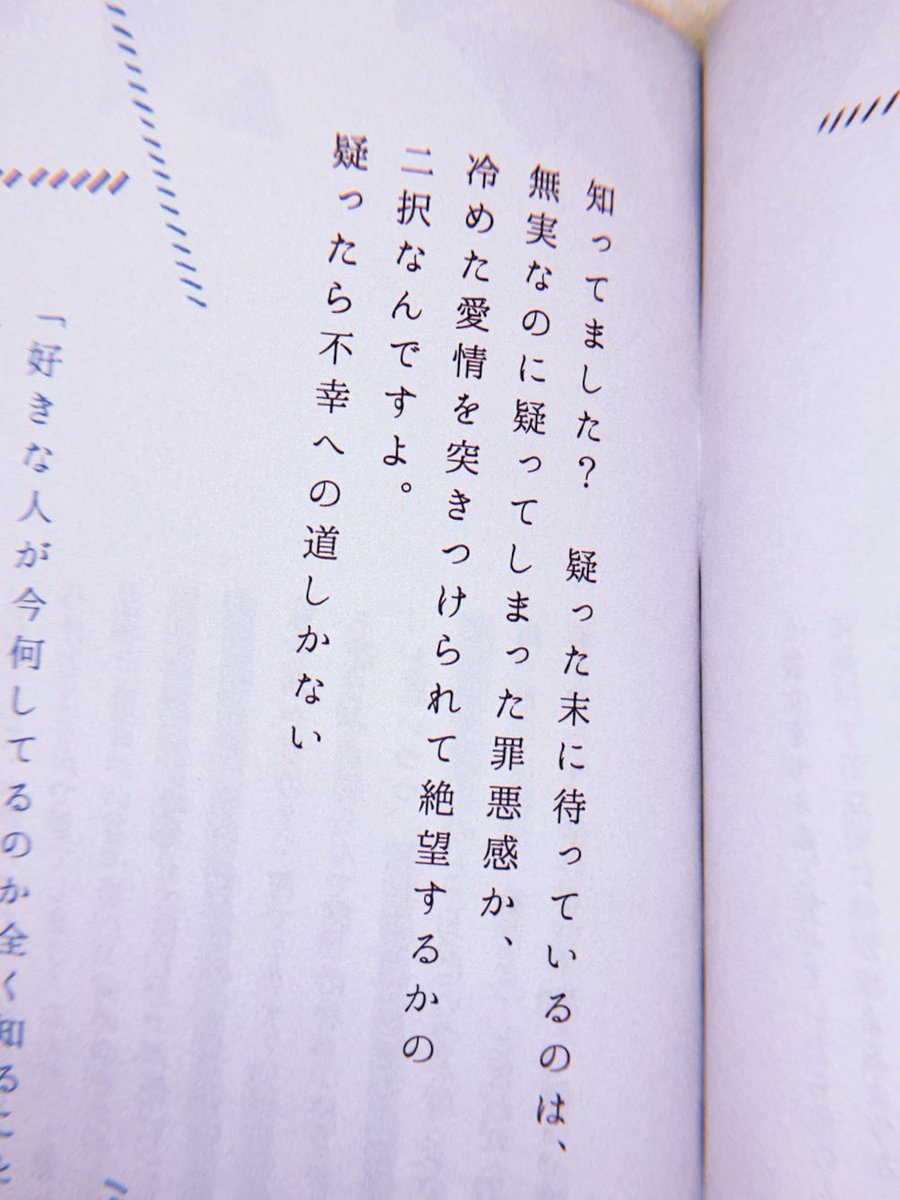 知ってました？　疑った末に待っているのは、
無実なのに疑ってしまった罪悪感か、
冷めた愛情を突きつけられて絶望するかの
二択なんですよ。
疑ったら不幸への道しかない
「好きな人が今何してるのか全く知ること